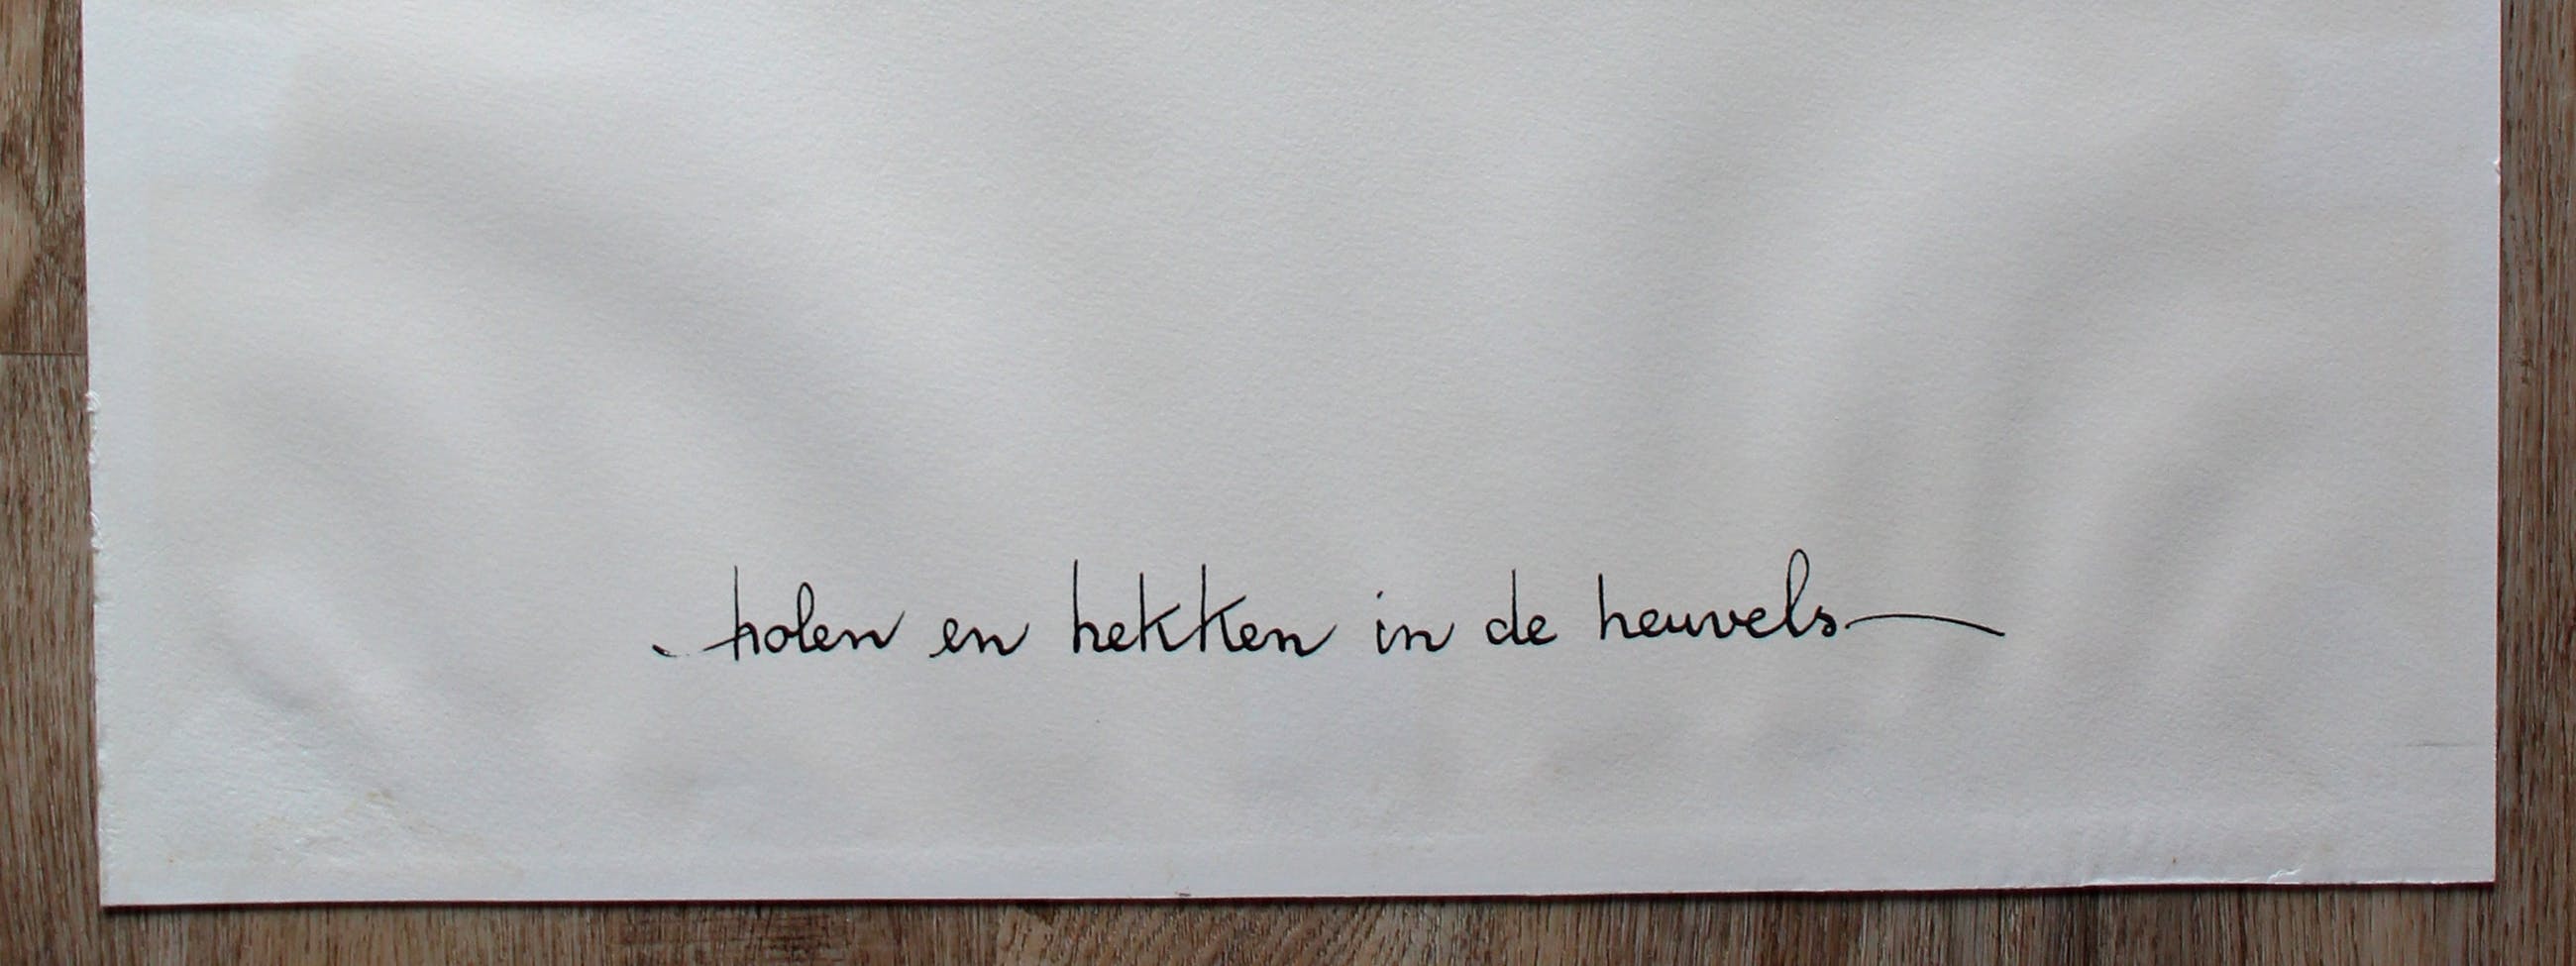 holen en hekken in de heuvels